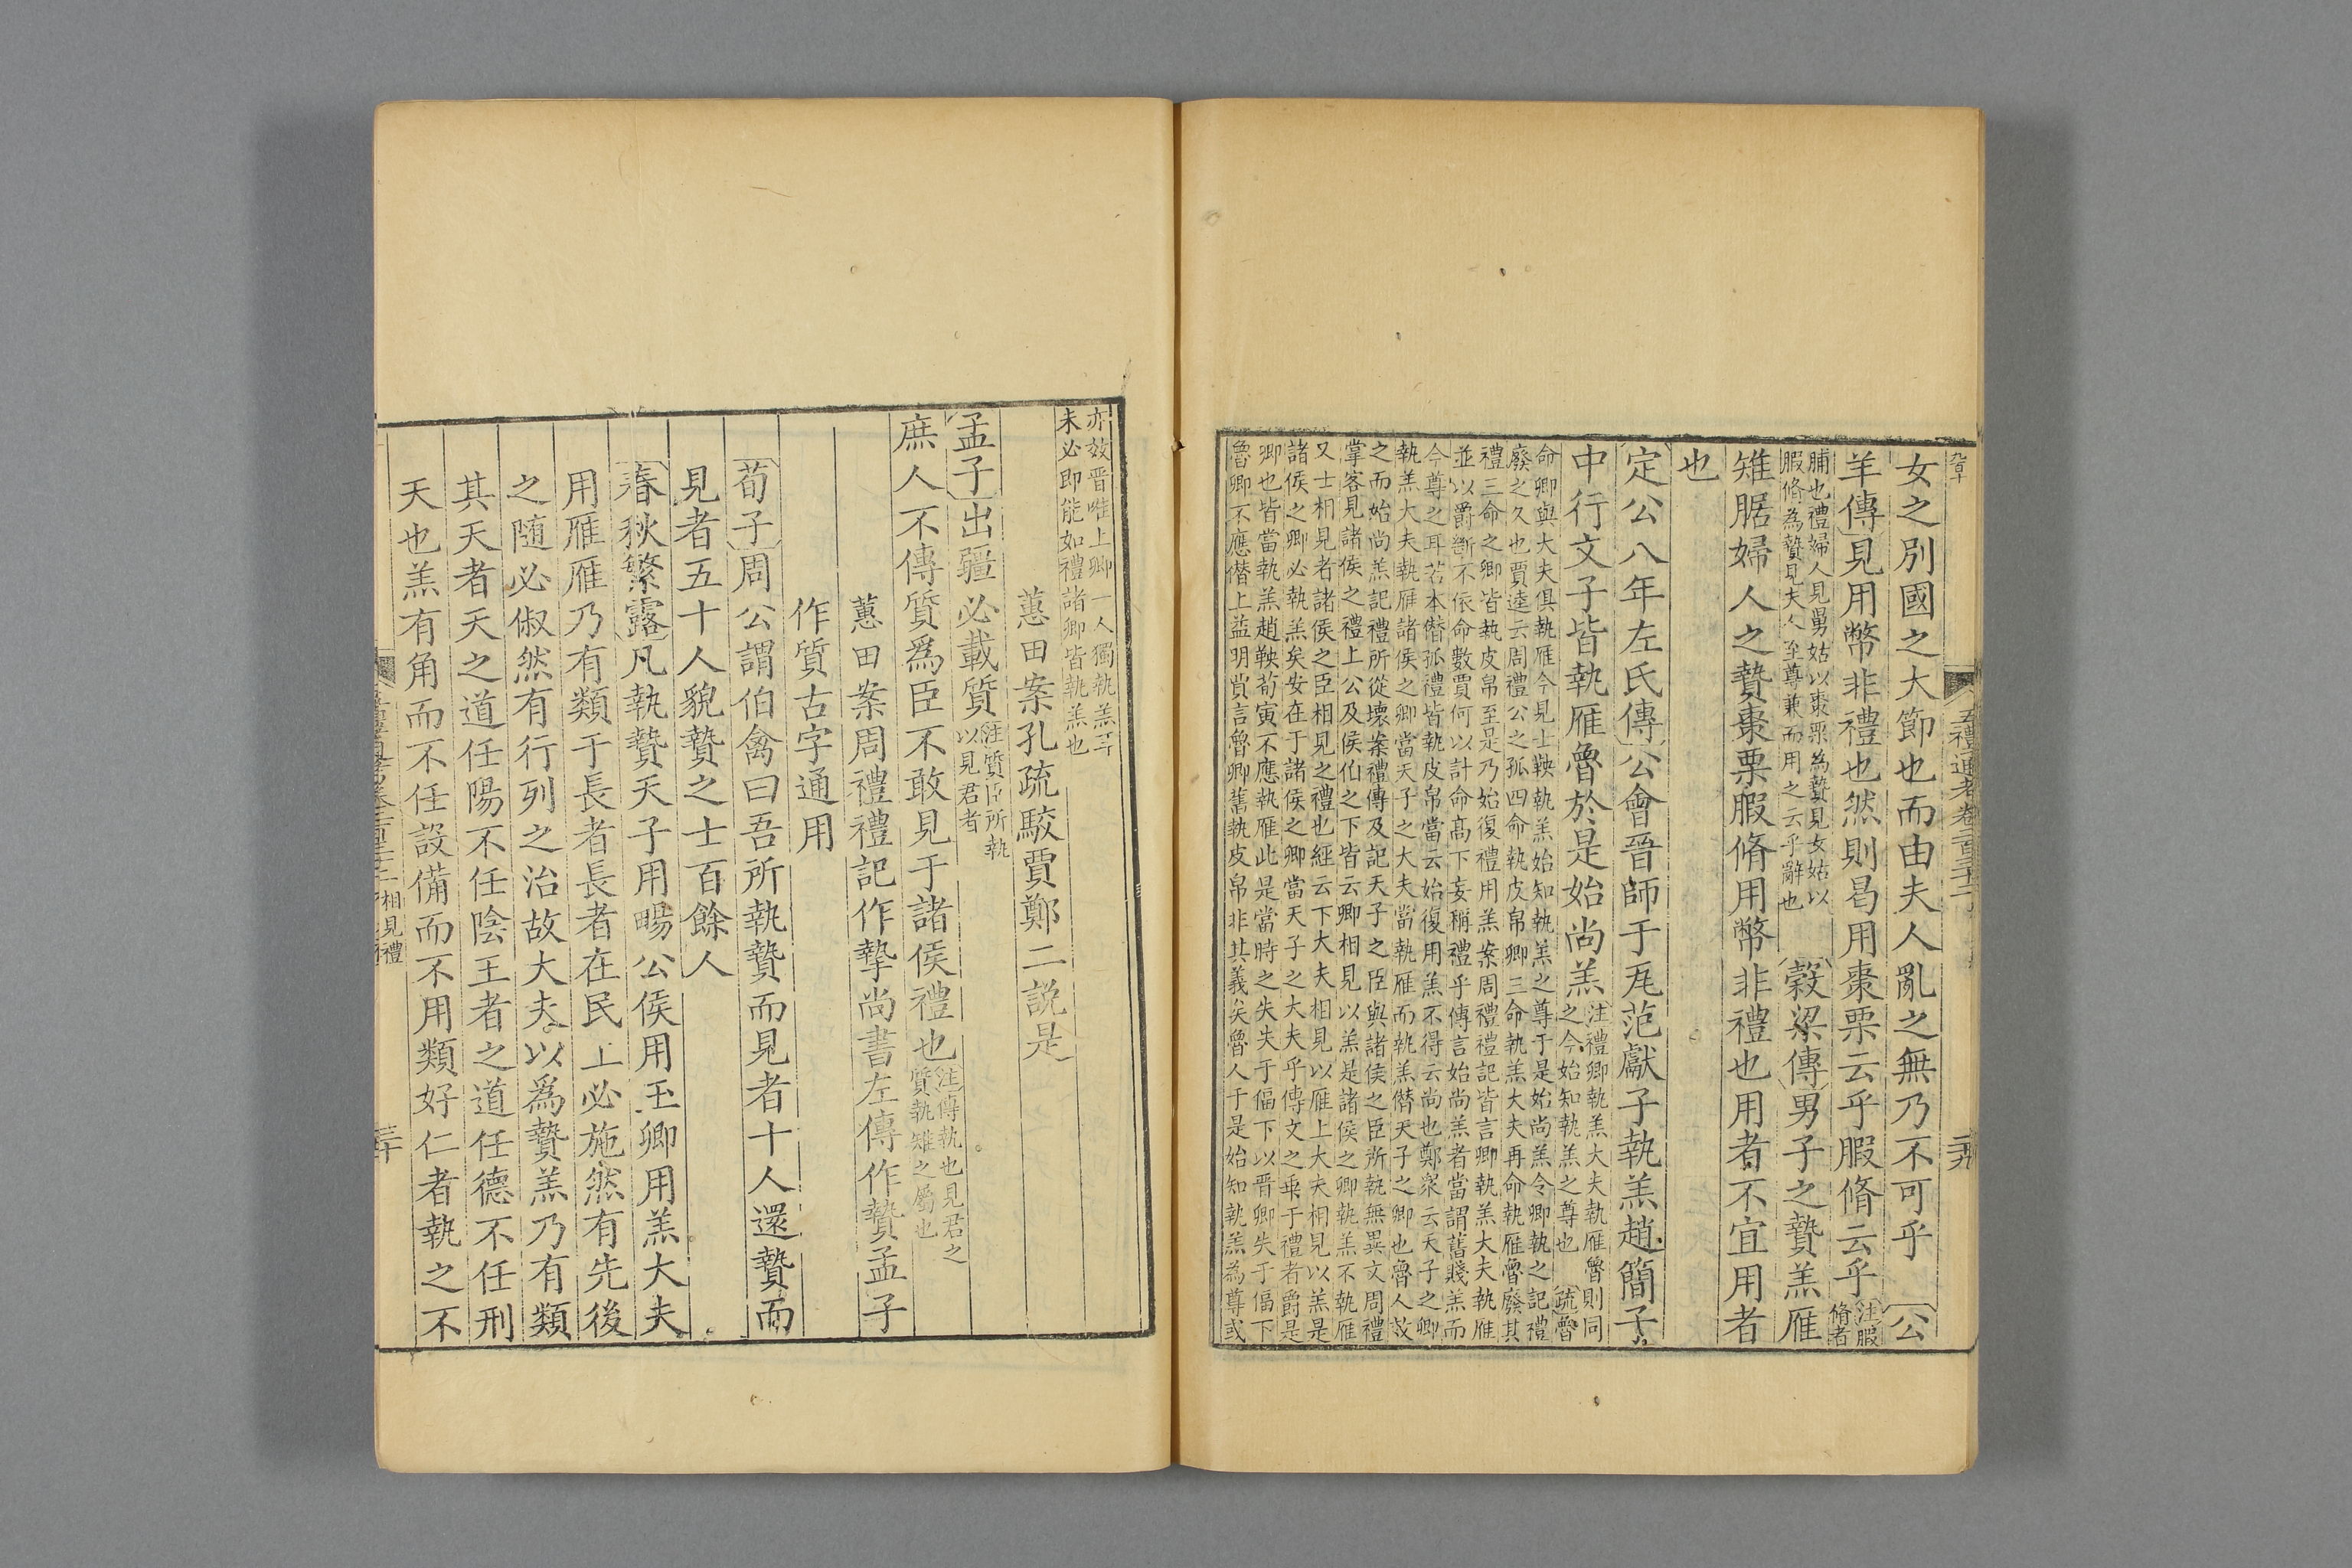 五禮通考卷二百三十二
女之別國之大節也而由夫人亂之無乃不可乎 公
羊傳見用幣非禮也然則曷用棗栗云乎腶脩云乎注腶脩者
脯也禮婦人見舅姑以棗栗為贄見女姑以
腶脩為贄見夫人至尊兼而用之云乎辭也
穀梁傳男子之贄羔雁
雉腒婦人之贄棗栗腶脩用幣非禮也用者不宜用者
也
定公八年左氏傳公會晉師于瓦范獻子執羔趙簡子
中行文子皆執雁魯於是始尚羔
注禮卿執羔大夫執雁魯則同
之今始知執羔之尊也 疏魯
命卿與大夫俱執雁今見士鞅執羔始知執羔之尊于是始尚羔令卿執之記禮
廢之久也賈逵云周禮公之孤四命執皮帛卿三命執羔大夫再命執雁魯廢其
禮三命之卿皆執皮帛至是乃始復禮用羔案周禮禮記皆言卿執羔大夫執雁
並以爵斷不依命數賈何以計命高下妄稱禮乎傳言始尚羔者當謂舊賤羔而
今尊之耳若本僭孤禮皆執皮帛當云始復用羔不得云尚也鄭衆云天子之卿
執羔大夫執雁諸侯之卿當天子之大夫當執雁而執羔僭天子之卿也魯人效
之而始尚羔記禮所從壞案禮傳及記天子之臣與諸侯之臣所執無異文周禮
掌客見諸侯之禮上公及侯伯之下皆云卿相見以羔是諸侯之卿執羔不執雁
又士相見者諸侯之臣相見之禮也經云下大夫相見以雁上大夫相見以羔是
諸侯之卿必執羔矣安在于諸侯之卿當天子之大夫乎傳文之乖于禮者爵是
卿也皆當執羔趙鞅荀寅不應執雁此是當時之失失于偪下以晉卿失于偪下
魯卿不應僭上益明賞言魯卿舊執皮帛非其義矣魯人于是始知執羔為尊或
亦效晉唯上卿一人獨執羔耳
未必即能如禮諸卿皆執羔也
蕙田案孔疏駁賈鄭二説是
孟子出疆必載質
注質臣所執
以見君者
庶人不傳質爲臣不敢見于諸侯禮也
注傳執也見君之
質執雉之屬也
蕙田案周禮禮記作摯尚書左傳作贄孟子
作質古字通用
荀子周公謂伯禽曰吾所執贄而見者十人還贄而
見者五十人貌贄之士百餘人
春秋繁露凡執贄天子用暢公侯用玉卿用羔大夫
用雁雁乃有類于長者長者在民上必施然有先後
之随必俶然有行列之治故大夫以爲贄羔乃有類
其天者天之道任陽不任陰王者之道任德不任刑
天也羔有角而不任設備而不用類好仁者執之不
相見禮
三十